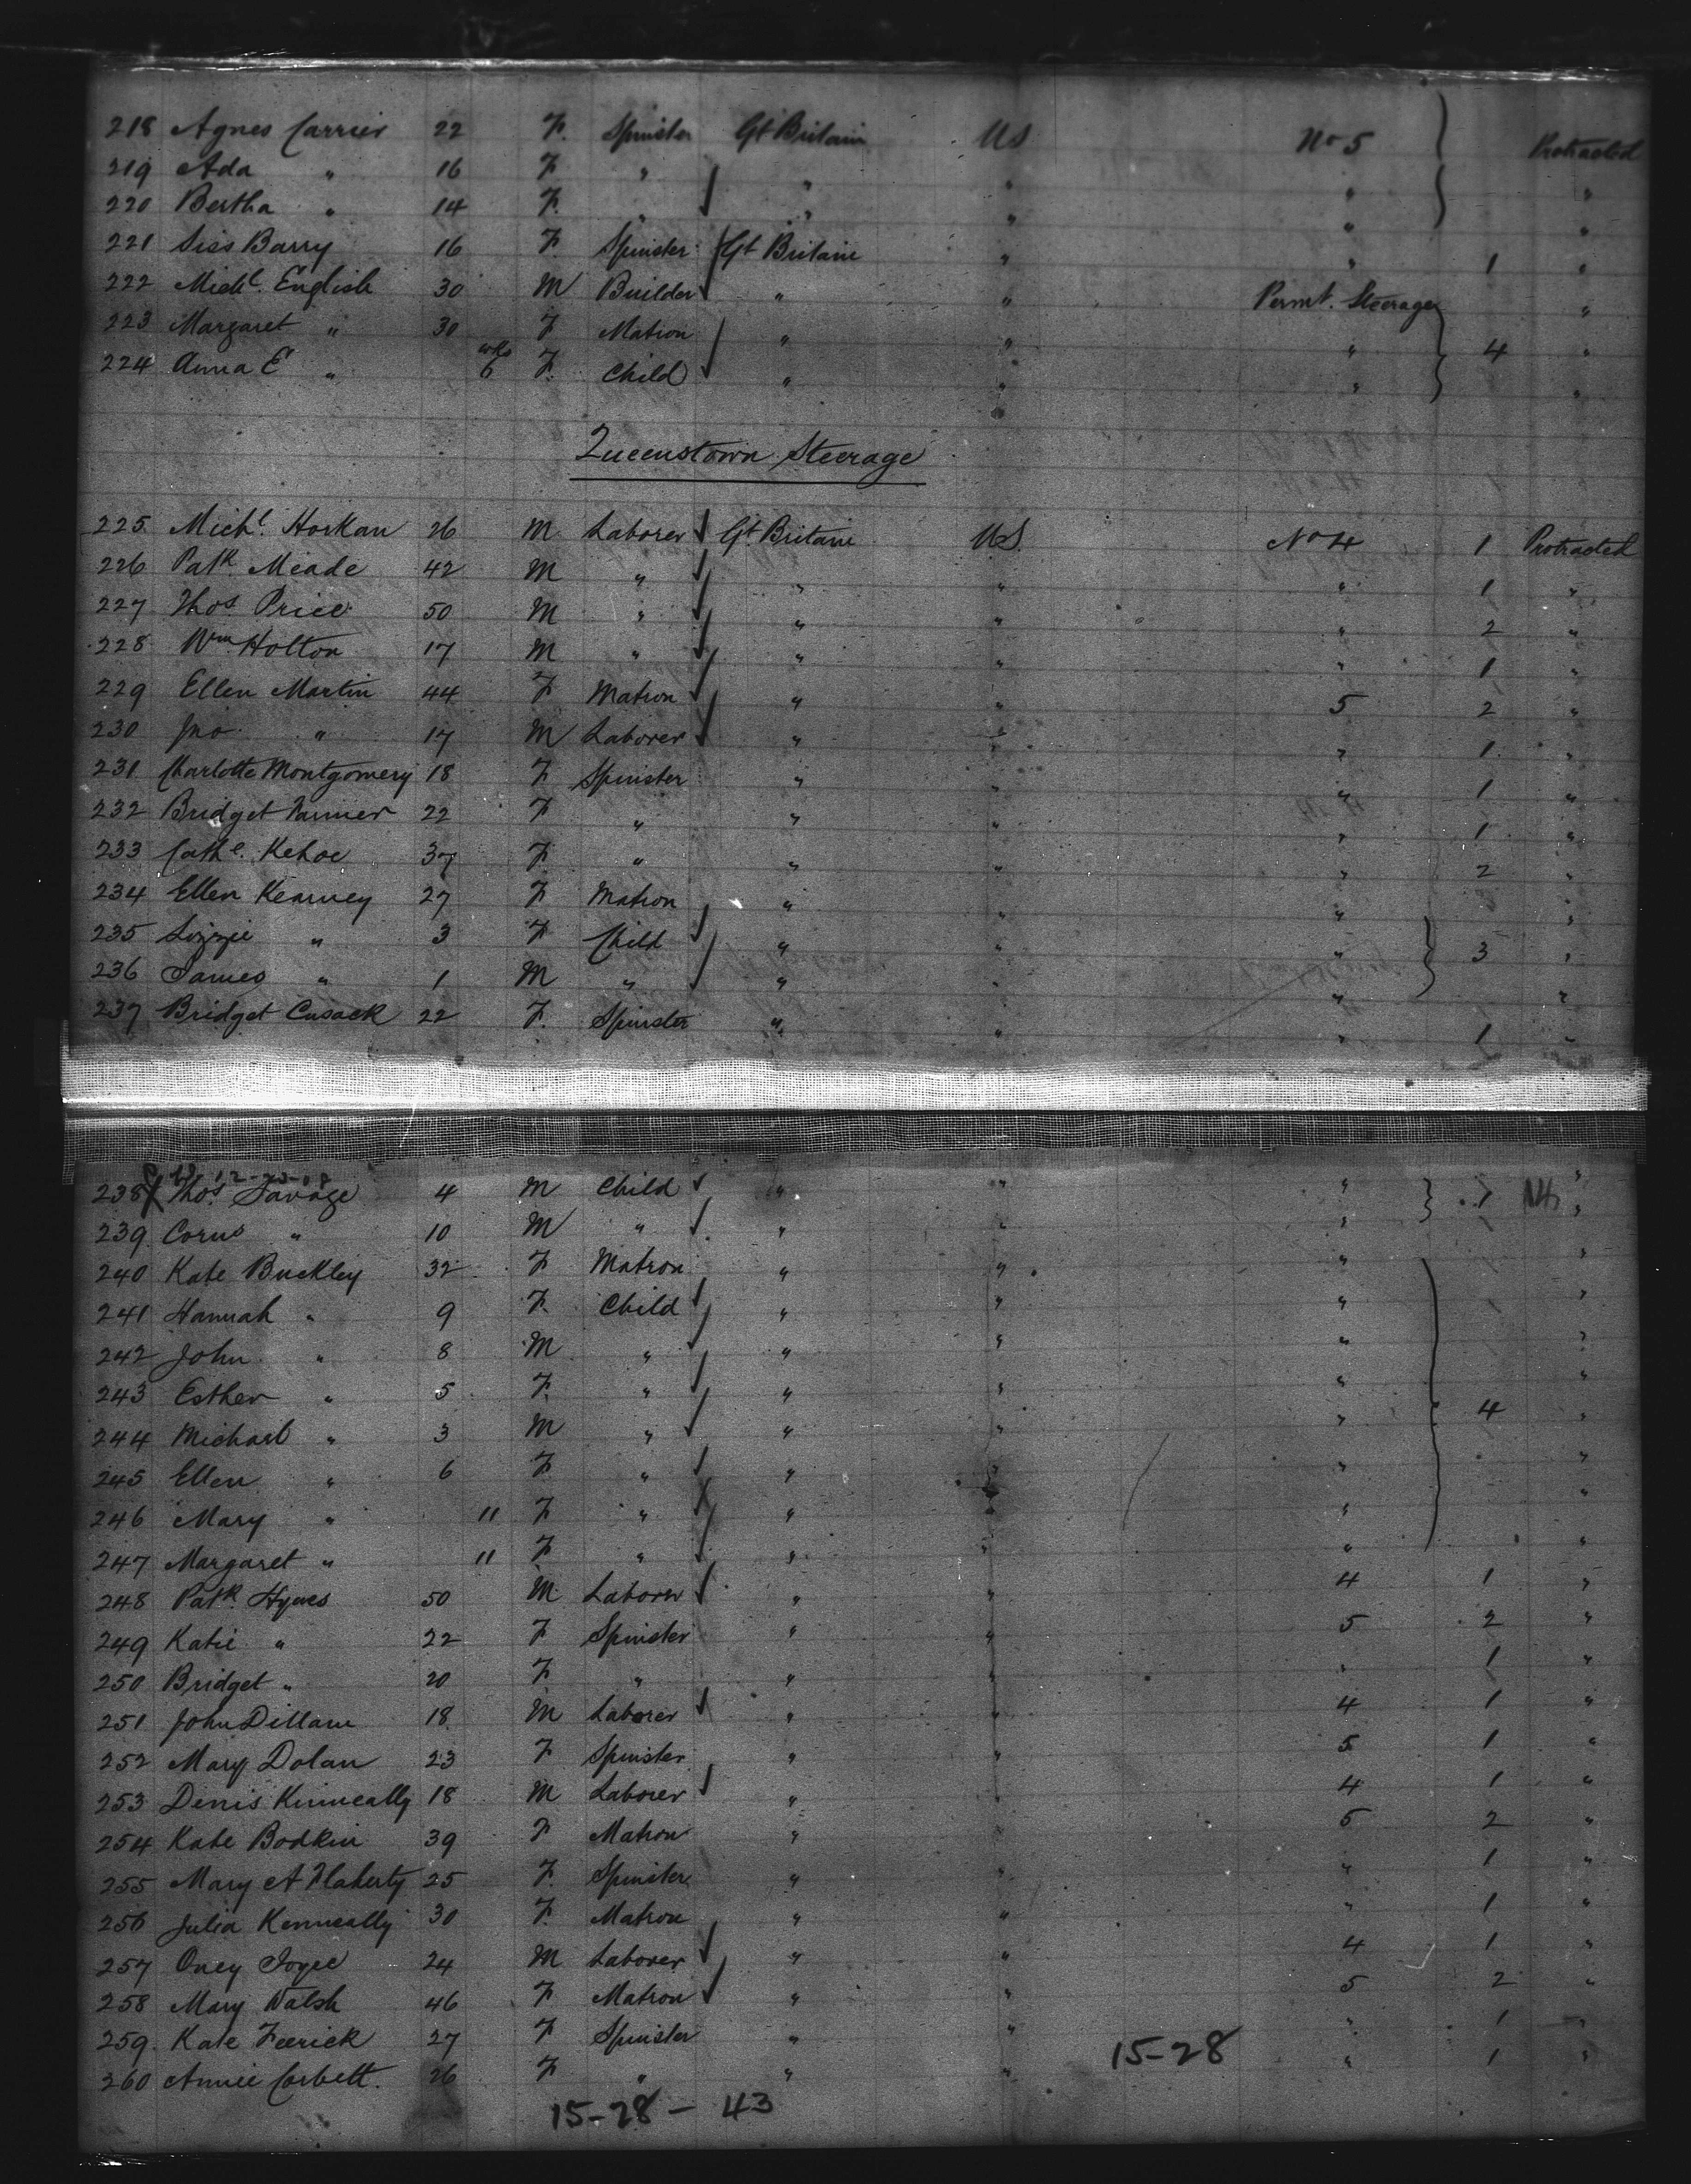 218 Agnes Carrier 22 F. Spinster Gt Britain US No 5 Protracted
219 Ada " 16 F " " " " "
220 Bertha " 14 F. " " " " "
221 Siss Barry 16 F Spinster Gt Britain " " 1 "
222 Michl. English 30 M Builder " " Permt. Steerage "
223 Margaret " 30 F Matron " " " 4 "
224 Anna E " 6 wks F. Child " " " "
Queenstown Steerage
225 Michl. Horkan 26 M Laborer Gt Britain US. No 4 1 Protracted
226 Patk. Meade 42 M " " " " 1 "
227 Thos Price 50 M " " " " 2 "
228 Wm Holton 17 M " " " " 1 "
229 Ellen Martin 44 F Matron " " 5 2 "
230 Jno " 17 M Laborer " " " 1 "
231 Charlotte Montgomery 18 F Spinster " " " 1 "
232 Bridget 22 F " " " " 1 "
233 Cathe. Kehoe 37 F " " " " 2 "
234 Ellen Kearney 27 F Matron " " " "
235 Lizzie " 3 F Child " " " 3 "
236 James " 1 M " " " " "
237 Bridget Cusack 22 F. Spinster " " " 1 "
12-23-08
238 Thos Savage 4 M Child " " " 1 "
239 Corns " 10 M " " " " "
240 Kate Buckley 32 F Matron " " " "
241 Hannah " 9 F. Child " " " "
242 John " 8 M " " " " "
243 Esther " 5 F. " " " " "
244 Michael " 3 M " " " " 4 "
245 Ellen " 6 F " " " " "
246 Mary " 11 F " " " " "
247 Margaret " 11 F " " " " "
248 Patk. Hynes 50 M Laborer " " 4 1 "
249 Katie " 22 F Spinster " " 5 2 "
250 Bridget " 20 F " " " " 1 "
251 John Dillane 18 M Laborer " " 4 1 "
252 Mary Dolan 23 F Spinster " " 5 1 "
253 Denis Kinneally 18 M Laborer " " 4 1 "
254 Kate Bodkin 39 F Matron " " 5 2 "
255 Mary A Flaherty 25 F. Spinster " " " 1 "
256 Julia Kenneally 30 F. Matron " " " 1 "
257 Oney Joyce 24 M Laborer " " 4 1 "
258 Mary Walsh 46 F Matron " " 5 2 "
259 Kate Feerick 27 F Spinster " " " 1 "
260 Annie Corbett. 26 F " " " " 1 "
15-28
15-28 - 43